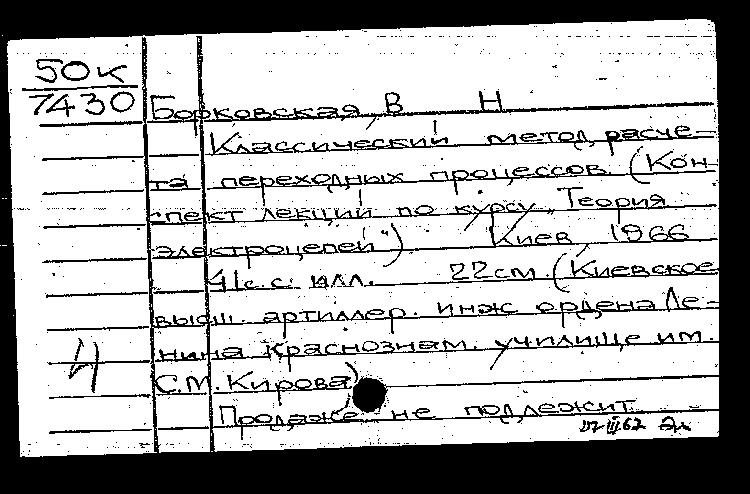 50к
7430
Борковская, В Н
Классический метод расче-
та переходных процессов. (Кон-
спект лекций по курсу „Теория
электроцепей“) Киев, 1966
41с. с. илл. 22см. (Киевское
высш. артиллер. инж ордена Ле-
нина Краснознам. училище им.
С.М. Кирова)
Продаже не подлежит
4